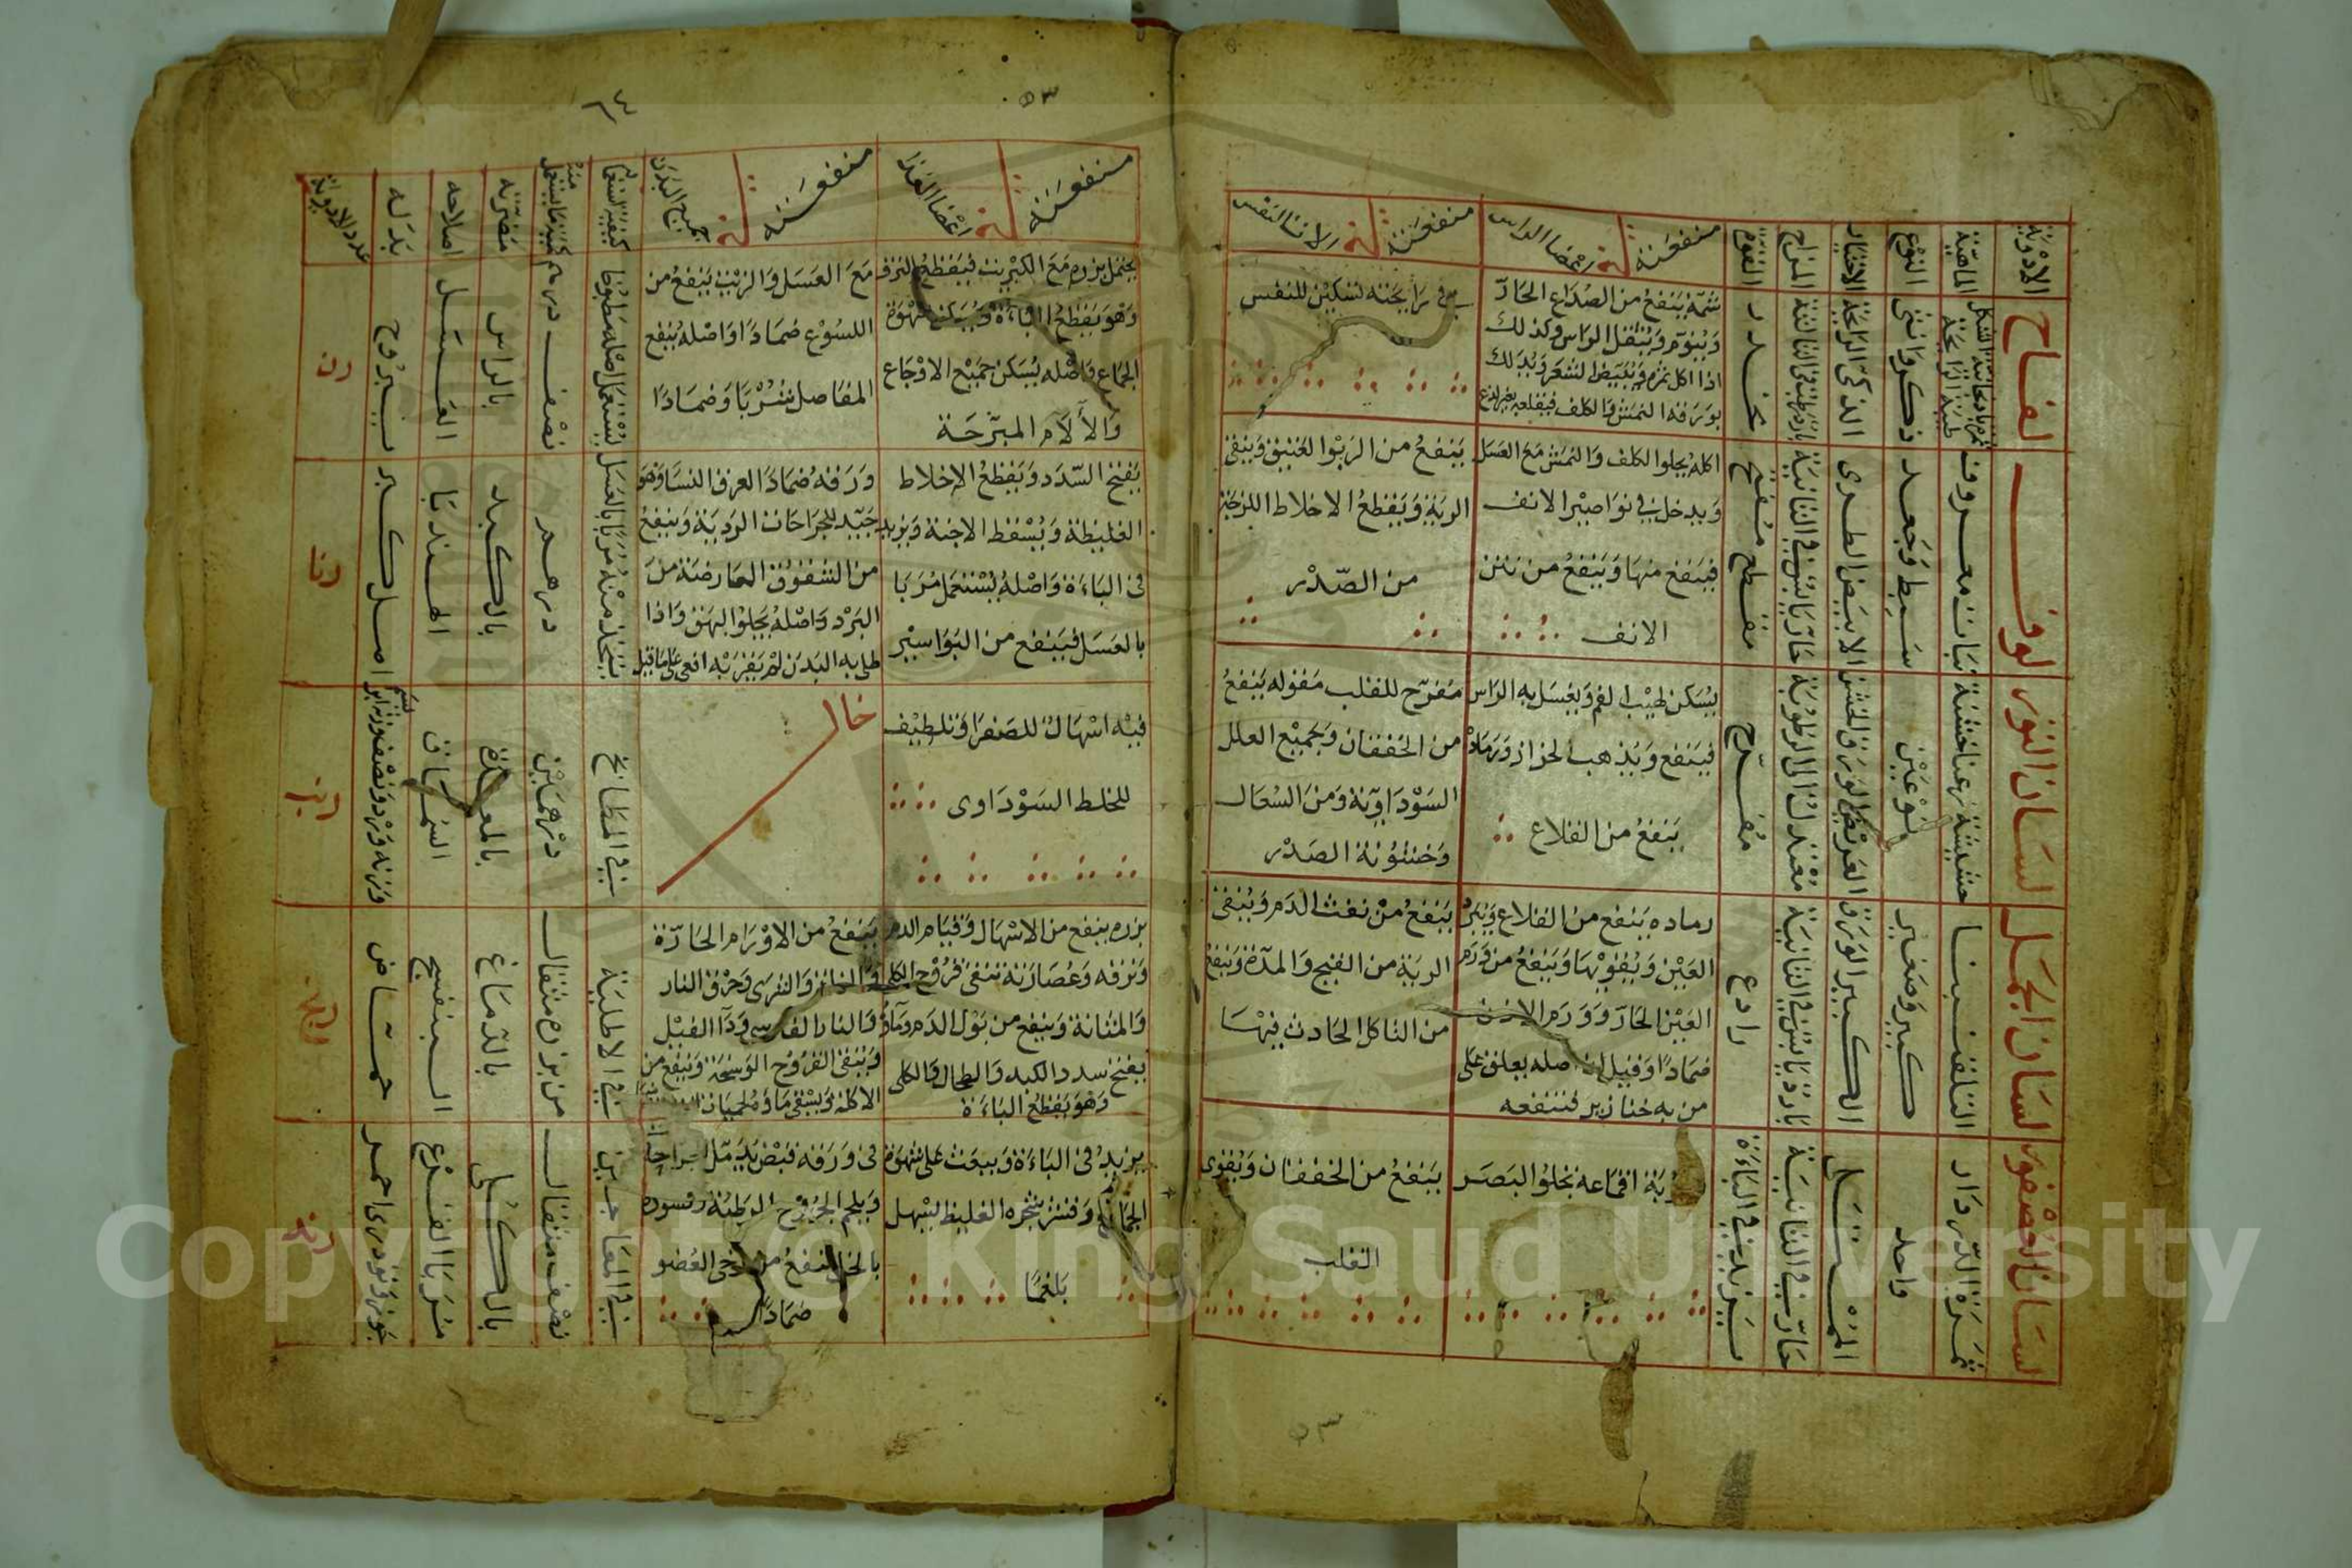 ٥٣
الادوية
الماهية
النوع
الاختيار
المزاج
القوة
منفعته في اعضا الراس
منفعته في الات النفس
لفاح
ذكر وانثى
الذكي الرايحة
مخدر
شمه ينفع من الصداع الحار
وينوم ويثقل الراس وكذلك
اذا اكل ثمره ويبيض الشعر ويدلك
بورقه النمش والكلف فيقلعه بغير لذع
في رايحته تسكين للنفس
لوف
نبات معروف
سبط وجعد
الابيض الطري
حار يابس في الثانية
مقطع مفتح
اكله يجلوا الكلف والنمش مع العسل
ويدخل في نواصير الانف
فينفع منها وينفع من نتن
الانف
ينفع من الربوا العتيق وينقي
الرية ويقطع الاخلاط اللزجة
من الصدر
لسان الثور
حشيشة عناخشنة
نوعين
العريض الورق الخشن
معتدل الى الرطوبة
مفرح
يسكن لهيب الفم ويغسل به الراس
فينفع ويذهب الحزاز ورماده
ينفع من القلاع
مفرح للقلب مقوله ينفع
من الخفقان وجميع العلل
السوداوية ومن السعال
وخشونة الصدر
لسان الجمل
كبير وصغير
الكبير الورق
بارد يابس في الثانية
رادع
رماده ينفع من القلاع
العين ويقويها وينفع من ورم
العين الحار وورم الاذن
ضمادا وقيل ان اصله يعلق على
من به خنازير فتنفعه
ينفع من نفث الدم وينقي
الرية من القيح والمدة وينفع
من التاكل الحادث فيها
لسان العصفور
ثمرة الدردار
واحد
الممتلي
حار في الثانية
يزيد في الباءة
اقماعه تجلوا البصر
ينفع من الخفقان ويقوى
القلب
٥٣
منفعته في اعضا الغذا
منفعته في جميع البدن
كيفية استعماله
كمية ما يستعمل منه
مضرته
اصلاحه
بدله
عدد الادوية
يحتمل بزره مع الكبريت فيقطع النزف
وهو يقطع الباءة ويسكن شهوة
الجماع واصله يسكن جميع الاوجاع
والالام المبرحة
مع العسل والزيت ينفع من
اللسوع ضمادا واصله ينفع
المفاصل شربا وضمادا
يستعمل اصله مطبوخا
نصف درهم
بالراس
العسل
يبروح
رن
يفتح السدد ويقطع الاخلاط
الغليظة ويسقط الاجنة ويزيد
في الباءة واصله يستعمل مربا
بالعسل فينفع من البواسير
ورقه ضمادا لعرق النسا وهو
جيد للجراحات الردية وينفع
من الشقوق العارضة من
البرد واصله يجلوا البهق واذا
طلي به البدن لم يقربه افعى على ما قيل
يتخذ منه مربا بالعسل
درهم
بالكبد
الهندبا
اصل كبر
رنا
فيه اسهال للصفرا وتلطيف
للخلط السوداوى
خال
في المطابخ
درهمين
بالمعدة
السماق
رنب
بزره ينفع من الاسهال وقيام الدم
ونزفه وعصارته تنقي قروح الكلى
والمثانة وينفع من بول الدم وماؤه
يفتح سدد الكبد والطحال والكلى
وهو يقطع الباءة
ينفع من الاورام الحارة
والخنازير والشرى وحرق النار
والنار الفارسي وداا الفيل
وينقي القروح الوسخة وينفع من
في الاطلية
من بزره مثقال
بالدماغ
البنفسج
حماض
يزيد في الباءة ويبعث على شهوة
الجماع وقشر شجره الغليظ يسهل
بلغما
في ورقه قبض يدمل
ويلحم الجروح الرطبة وقشوره
بالخل ينفع من رخى العضو
ضمادا
في المعاجين
نصف مثقال
بالكلى
مربا القرع
جوز وتودرى احمر
رند
Copyright © King Saud University